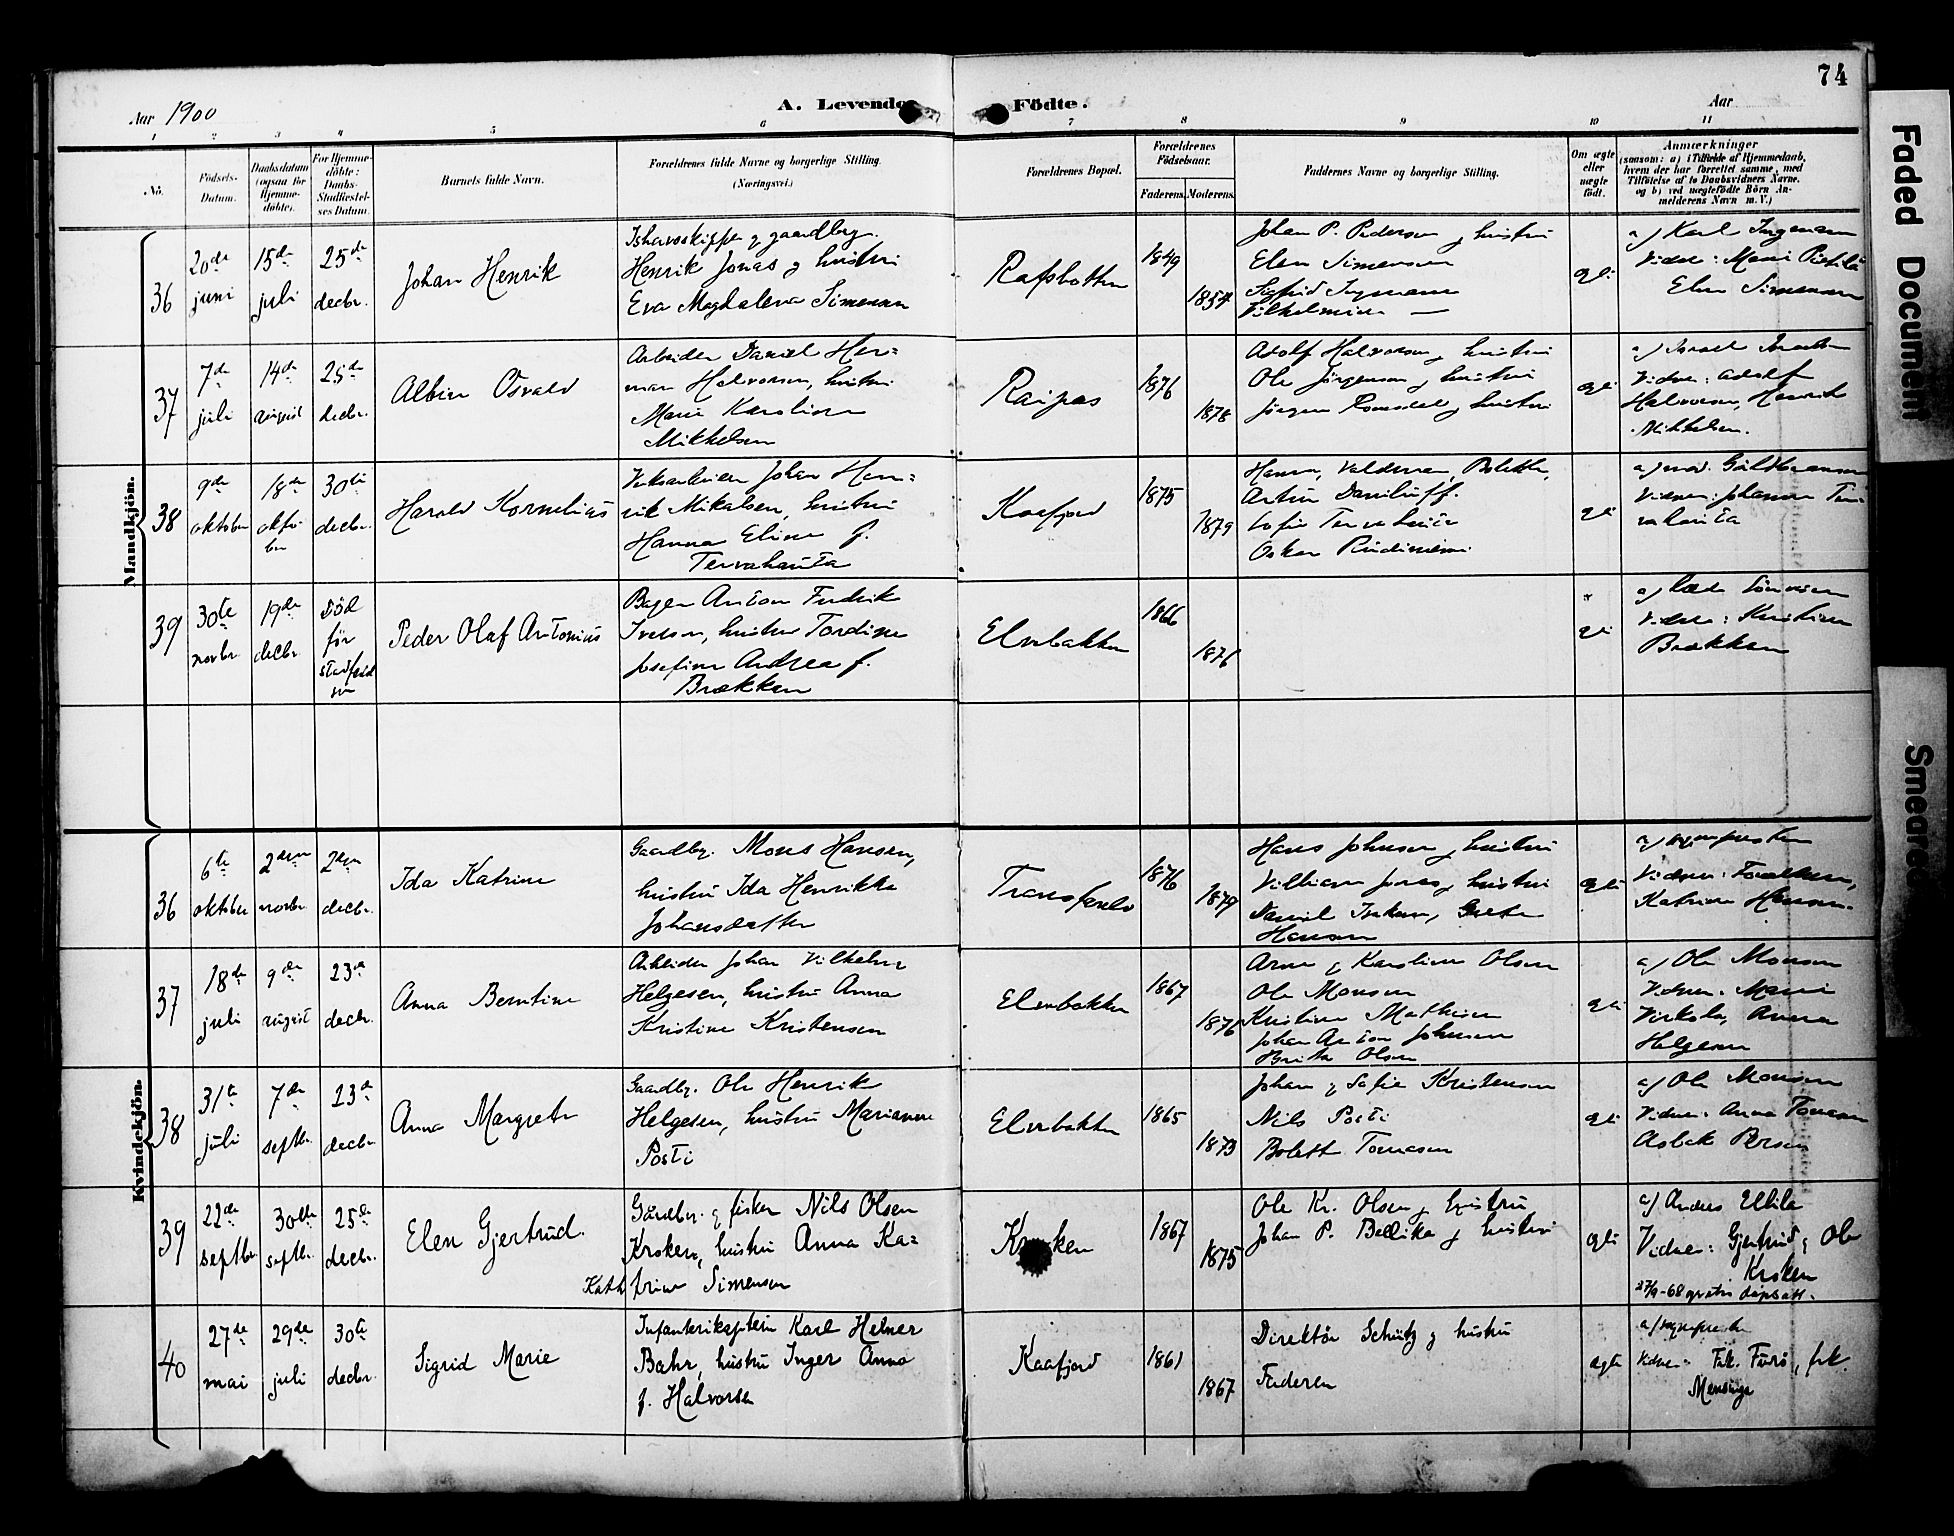 74
Aar 1900
A. Levende Födte.
Aar
1 2 3 4 5 6 7 8 9 10 11
No.
Födsels-
Datum.
Daabsdatum
(ogsaa for
Hjemme-
döbte).
For Hjemme-
döbte:
Daabs-
Stadfæstel-
ses Datum.
Barnets fulde Navn.
Forældrenes fulde Navne og borgerlige Stilling.
(Næringsvei.)
Forældrenes Bopæl.
Forældrenes
Födselsaar.
Faderens. Moderens.
Faddernes Navne og borgerlige Stilling.
Om ægte
eller
uægte
födt.
Anmærkninger
(saasom: a) i Tilfælde af Hjemmedaab,
hvem der har forrettet samme, med
Tilföielse af to Daabsvidners Navne.
og b) ved uægtefödte Börn An-
melderens Navn m. V.)
Mandkjön.
36
20de
juni
15de
juli
25de
decbr.
Johan Henrik
Ishavsskipper g gaardbrg.
Henrik Jonas g hustru
Eva Magdalena Simensen
Rafsbotten
1849
1857
Johan P. Pedersen g hustru
Elen Simensen
Sigfrid Ingmann
Vilhelmine —
a) Karl Ingemann
Vidner: Marie
Elen Simensen
37
7de
juli
14de
august
25de
decbr.
Albin Osvald
Arbeider Daniel Her=
man Halvorsen, hustru
Marie Karoline
Mikkelsen
Raipas
1876
1878
Adolf Halvorsen g hustru
Ole Jörgensen g hustru
Jörgen Romsdal g hustru
Vidner: Adolf
Halvorsen, Henrik
Mikkelsen.
38
9de
oktober
18de
okto-
ber
30te
decbr.
Harald Kornelius
Johan Hen=
rik Mikalsen, hustru
Hanna Eline f.
Tervahauta
Kaafjord
1875
1879
Hanna, Valdemar, Bolette,
Tervahauta
Oskar
a)
Vidner: Johanna Ter-
vahauta
39
30te
novbr.
19de
decbr.
Död
för
stadfæst
sen
Peder Olaf Antonius
Bager Anton Fredrik
Iversen, hustru Tordine
Josefine Andrea f.
Brækken
Elvebakken
1866
1876
a)
Vidner: Kristine
Brækken
Kvindekjön.
36
6te
oktober
2den
novbr.
2den
decbr.
Ida Katrine
Gaardbr. Mons Hansen,
hustru Ida Henrikke
Johansdatter
Transfarelv
1876
1879
Hans Johnsen g hustru
Villiam Jonas g hustru
Daniel Isaksen, Grete
Hansen
a) sognepresten
Vidner: Forældrene,
Katrine Hansen.
37
18de
juli
9de
august
23de
decbr.
Anna Berntine
Arbeider Johan Vilhelm
Helgesen, hustru Anna
Kristine Kristensen
Elvebakken
1867
1876
Arne g Karoline Olsen
Ole Monsen
Kristine Mathisen
Johan Anton Johnsen
Brita Olsen
a) Ole Monsen
Vidner: Marie
Anna
Helgesen
38
31te
juli
7de
septbr.
23de
decbr
Anna Margrete
Gaardbr. Ole Henrik
Helgesen, hustru Marianne
Posti
Elvebakken
1865
1873
Johan g Sofie Kristensen
Nils Posti
Bolette Tomasen
a) Ole Monsen
Vidner: Anna Tomasen
Aslak Persen
39
22de
septbr
30te
septbr.
25de
decbr.
Elen Gjertrud.
Gårdbr. g fisker Nils Olsen
Kroken, hustru Anna Ka=
Kath trine Simensen
Kroken
1867
1875
Ole Kr. Olsen g hustru
Johan P. Bellika g hustru
ægte
a) Anders
Vidner: Gjertrud g Ole
Kroken
27/9-68 gratis dåpsatt.
40
27de
mai
29de
juli
30te
decbr.
Sigrid Marie
Infanterikaptein Karl Helmer
Bahr, hustru Inger Anna
f. Halvorsen
Kaafjord
1861
1867
Direktör Schütz g hustru
Faderen
ægte
a) sognepresten
Vidner: Frk. , frk.
Faded Document
Smeared